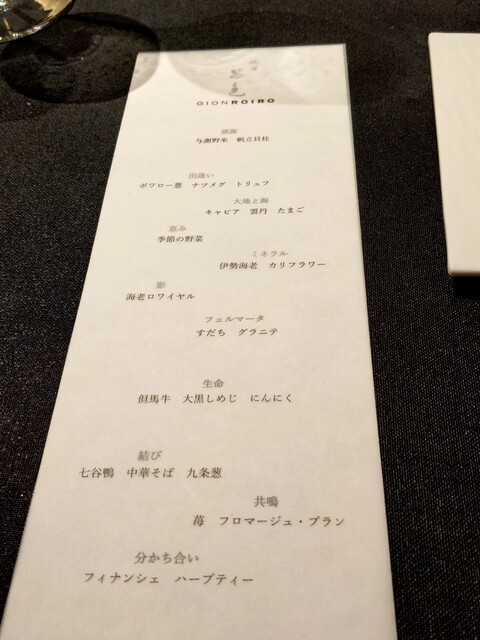 GIONROIRO
感謝
与謝野米 帆立貝柱
出逢い
ポワロー葱 ナツメグ トリュフ
大地と海
キャビア 雲丹 たまご
恵み
季節の野菜
ミネラル
伊勢海老 カリフラワー
影
海老ロワイヤル
フェルマータ
すだち グラニテ
生命
但馬牛 大黒しめじ にんにく
結び
七谷鴨 中華そば 九条葱
共鳴
苺 フロマージュ・ブラン
分かち合い
フィナンシェ ハーブティー